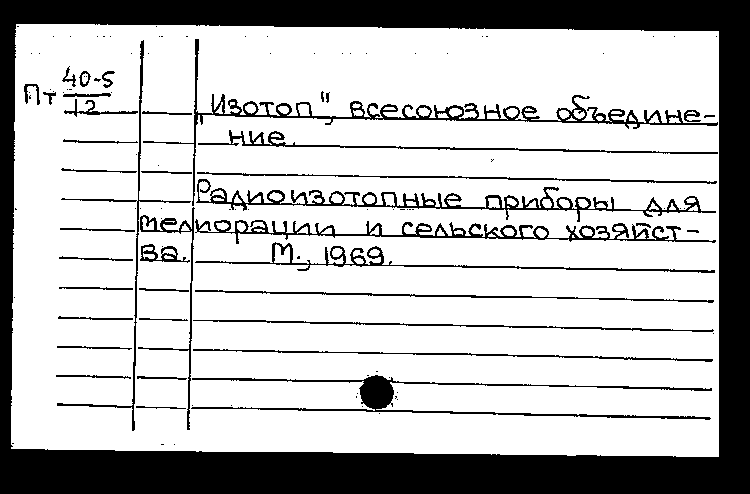 Пт 40-5
12
„Изотоп", всесоюзное объедине-
ние.
Радиоизотопные приборы для
мелиорации и сельского хозяйст-
ва. М., 1969.